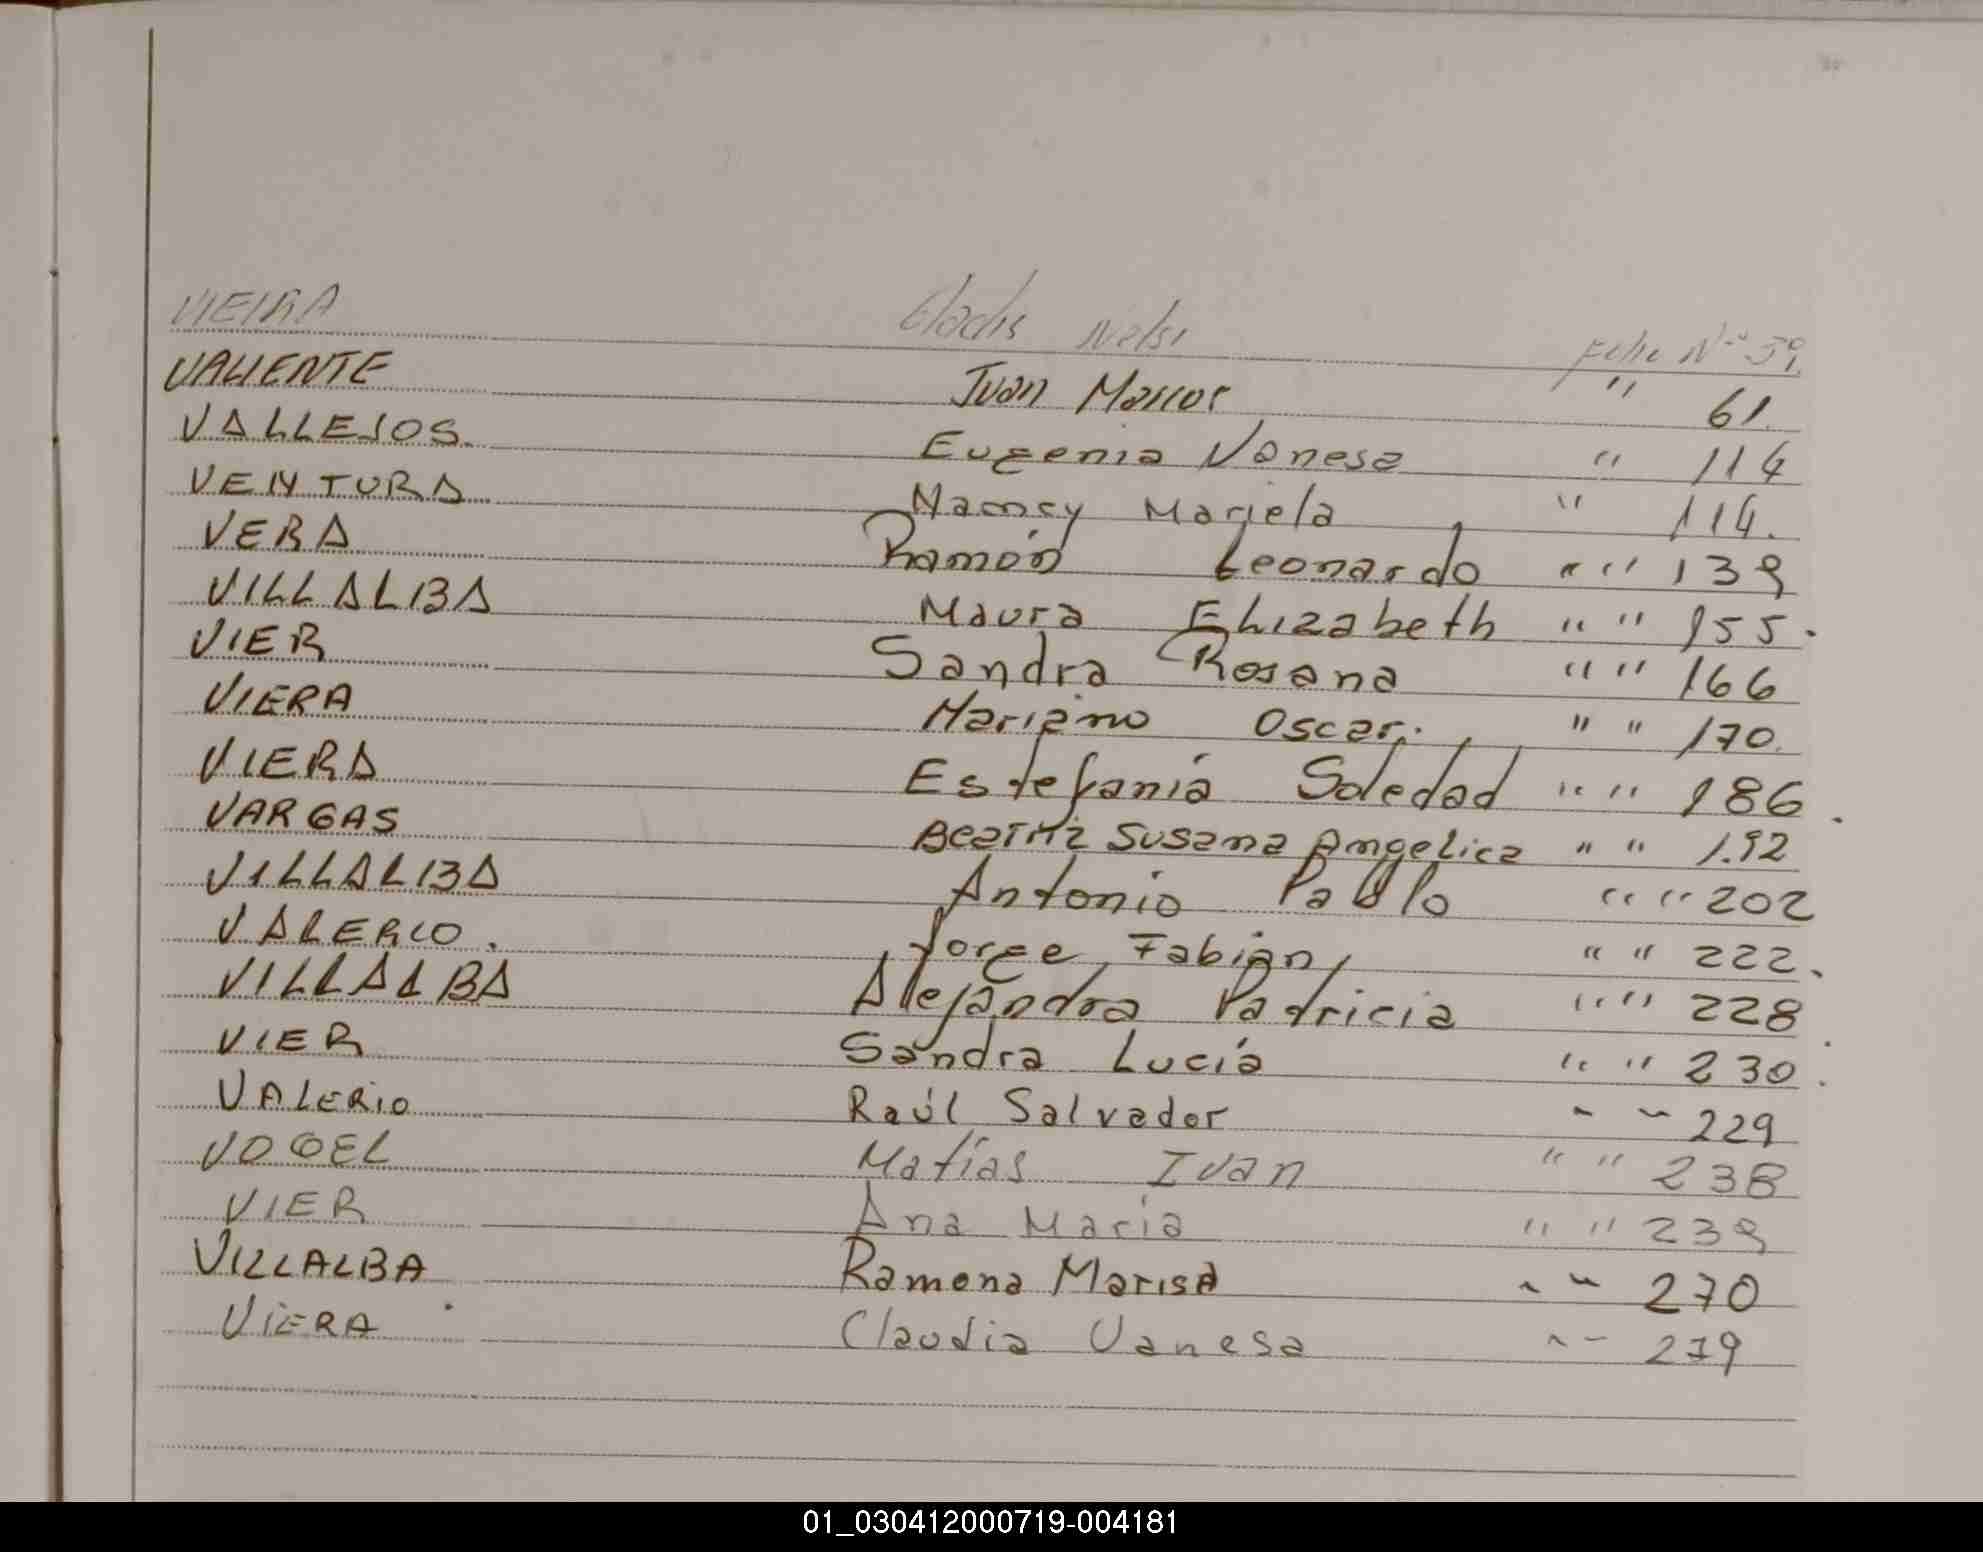 VIEIRA Gladis Nelsi Folio Nº 59.
VALIENTE Juan Marcos " 61.
VALLEJOS. Eugenia Vanesa " 114
VENTURA Nancy Mariela " 114.
VERA Ramón Leonardo " " 139
VILLALBA Maura Elizabeth " " 155.
VIER Sandra Rosana " " 166
VIERA Mariano Oscar. " " 170.
VIERA Estefanía Soledad " " 186.
VARGAS Beatriz Susana Angelica " " 192
VILLALBA Antonio Pablo " " 202
VALERIO. Jorge Fabian " " 222.
VILLALBA Alejandra Patricia " " 228
VIER Sandra Lucía " " 230.
VALERIO Raúl Salvador " " 229
VOGEL Matías Ivan " " 238
VIER Ana María " " 239
VILLALBA Ramona Marisa " " 270
VIERA Claudia Vanesa " " 279
01_030412000719-004181